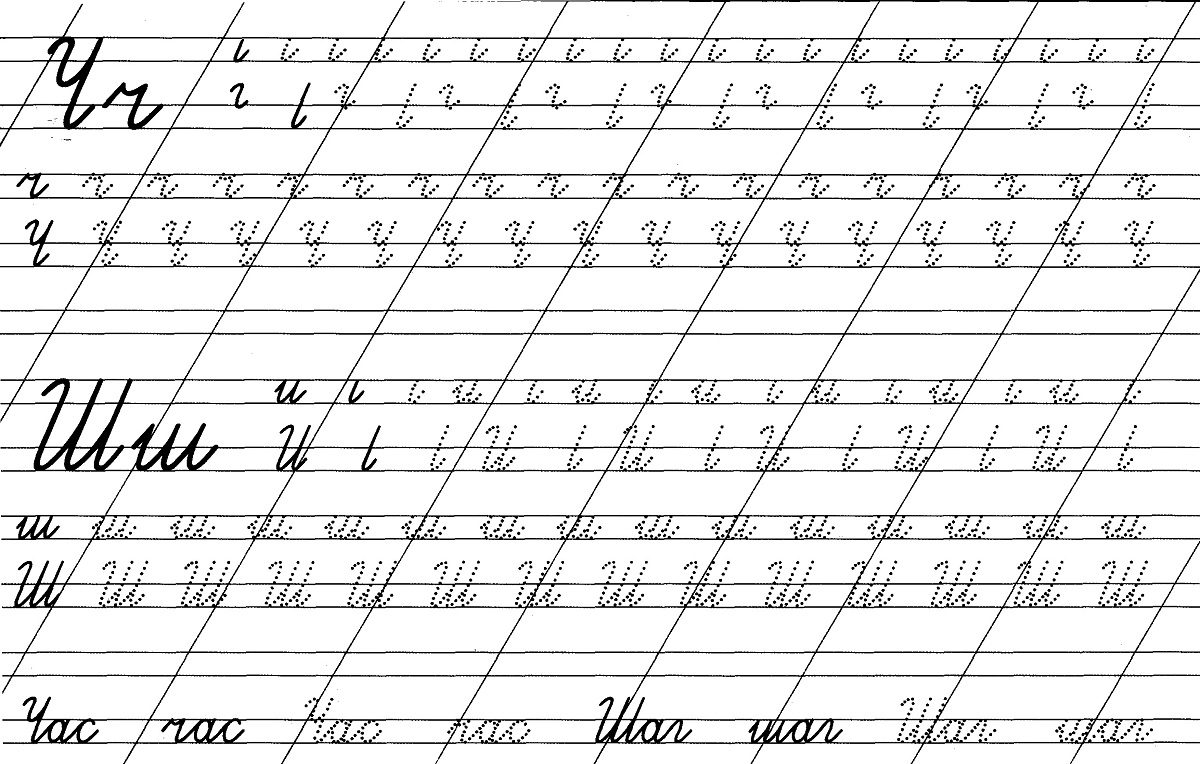 Чч
ч ч ч ч ч ч ч ч ч ч ч ч ч ч ч ч ч ч
Ч Ч Ч Ч Ч Ч Ч Ч Ч Ч Ч Ч Ч Ч Ч Ч Ч
Шш
ш ш ш ш ш ш ш ш ш ш ш ш ш ш ш
Ш Ш Ш Ш Ш Ш Ш Ш Ш Ш Ш Ш Ш Ш
Час час Час час Шаг шаг Шаг шаг